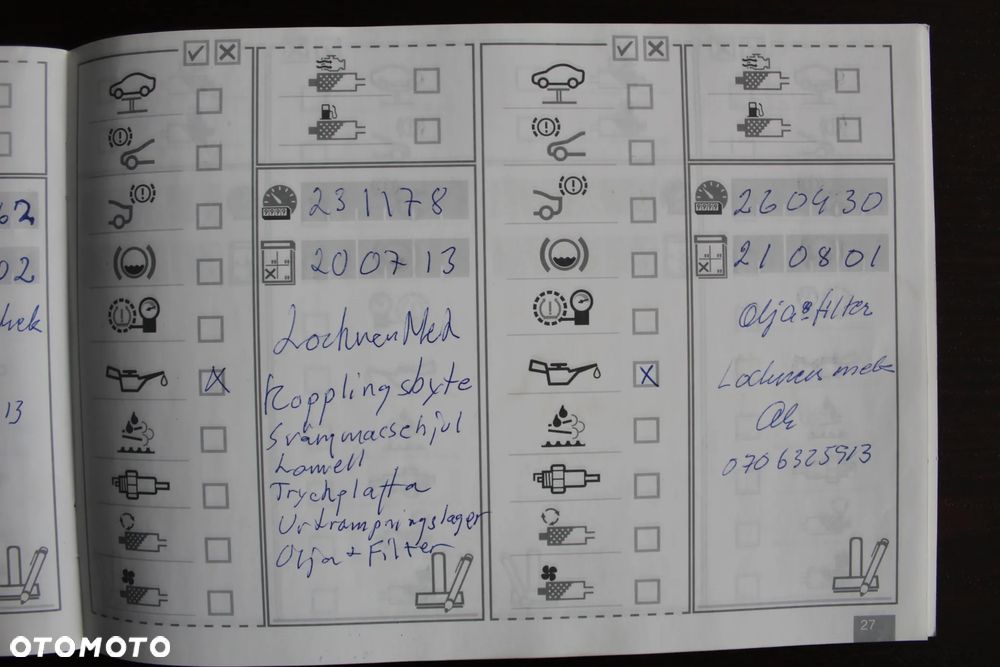 62
02
13
231178
20 07 13
Lochnen Med
Kopplingsbyte
Svämmacschjul
Lamell
Trychplatta
Urtrampningslager
Olja + Filter
260430
21 08 01
Olja o filter
Lochnens mek
0706325913
27
OTOMOTO